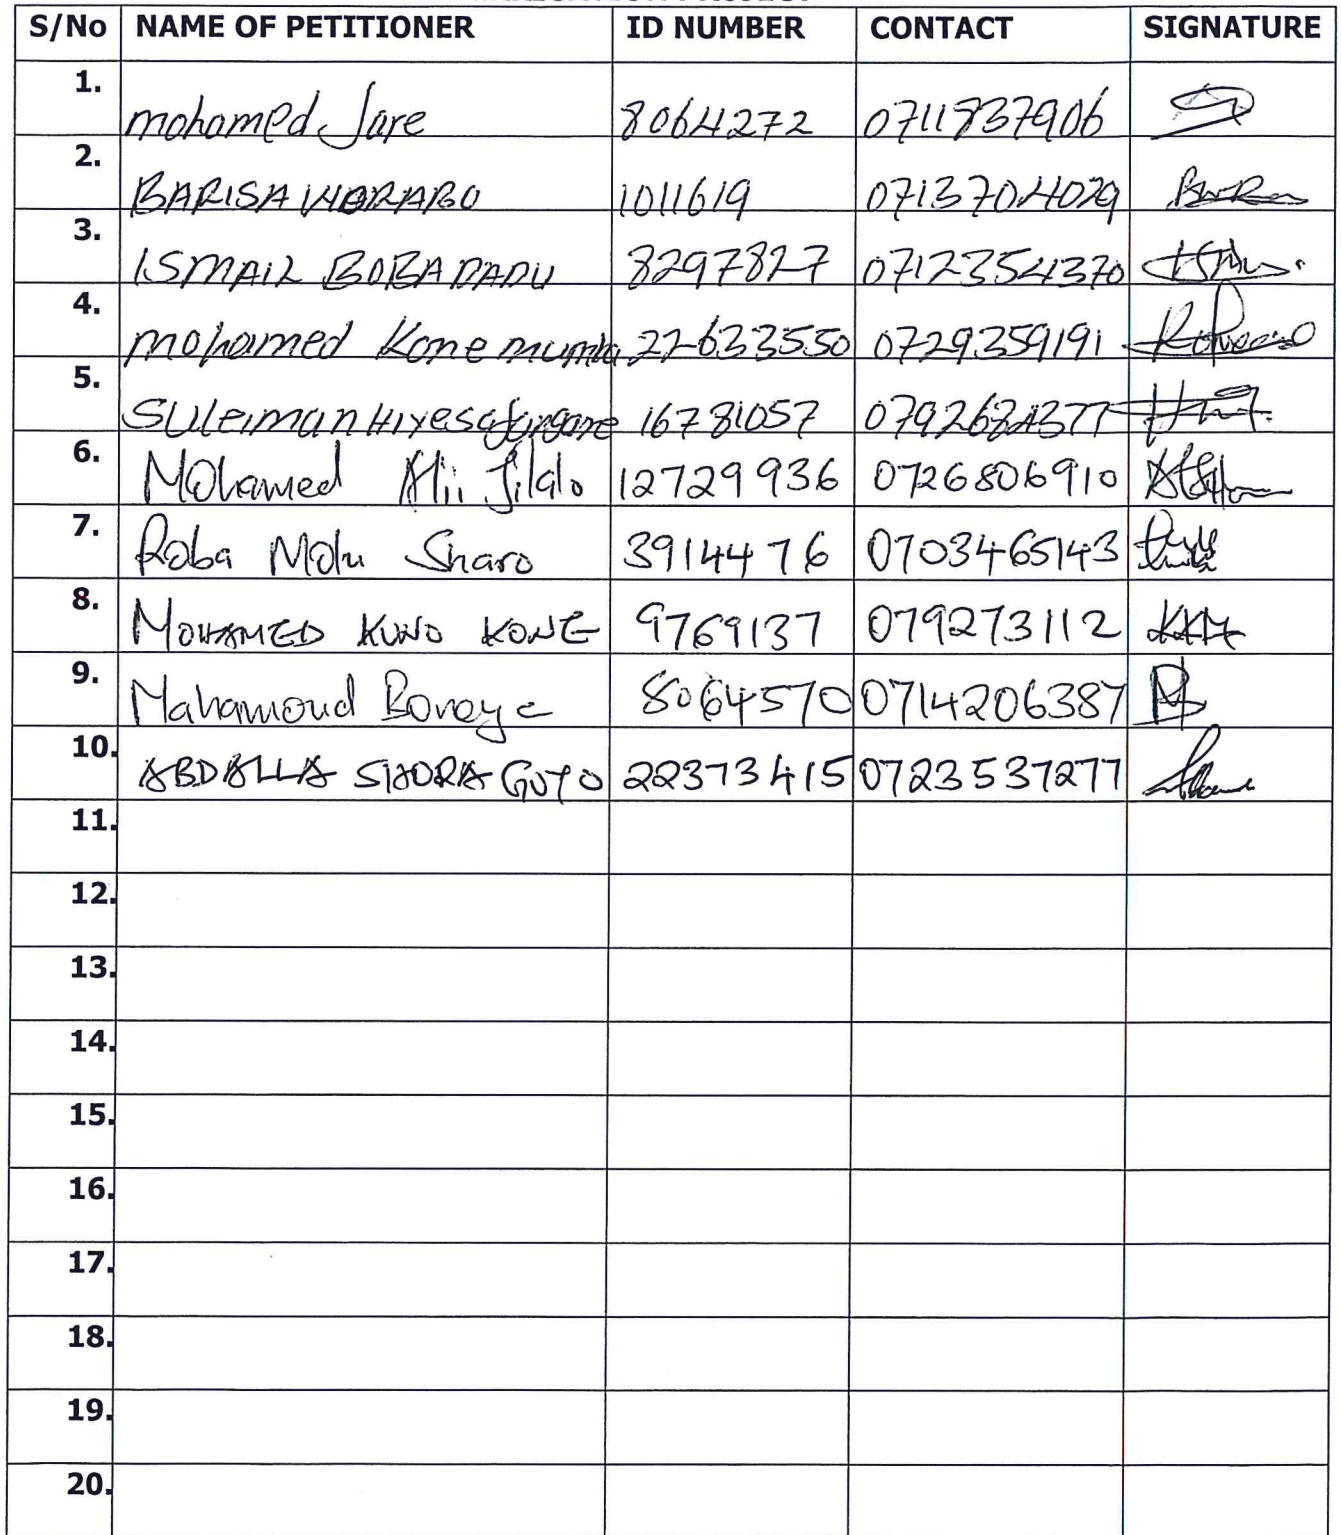 S/No NAME OF PETITIONER ID NUMBER CONTACT SIGNATURE
1. mohamed Jare 8064272 0711837906
2. BARISA WARABO 1011619 0713704029
3. ISMAIL BOBA DADU 8297827 0712354370
4. mohamed Kone mumba 22633550 0729359191
5. SULEIMAN HIYESA 16781057
6. Mohamed Alii Jilalo 12729936 0726806910
7. Roba Molu Sharo 39144 76 0703465143
8. MOHAMED KUNO KONE 9769137 079273112
9. Mahamoud Boneya 8064570 0714206387
10. ABDALLA SHORA GUYO 22373415 0723537277
11.
12.
13.
14.
15.
16.
17.
18.
19.
20.